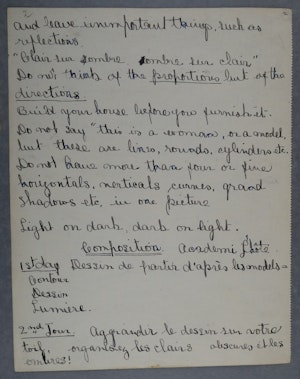 2
and leave unimportant things, such as
reflections
"Clair sur sombre, sombre sur clair"
Do not think of the proportions but of the
directions
Build your house before you furnish it.
Do not say "this is a woman, or a model,
but these are lines, rounds, cylinders etc.
Do not have more than four or five
horizontals, verticals curves, grand
shadows etc, in one picture
Light on dark, dark on light.
Composition. Academi Lhôte
1st day Dessin de partir d'après les models =
Contour
Dessin
Lumiere.
2nd Jour. Aggrandir le dessin sur votre
toil, organisez les clairs obscures et les
ombres!